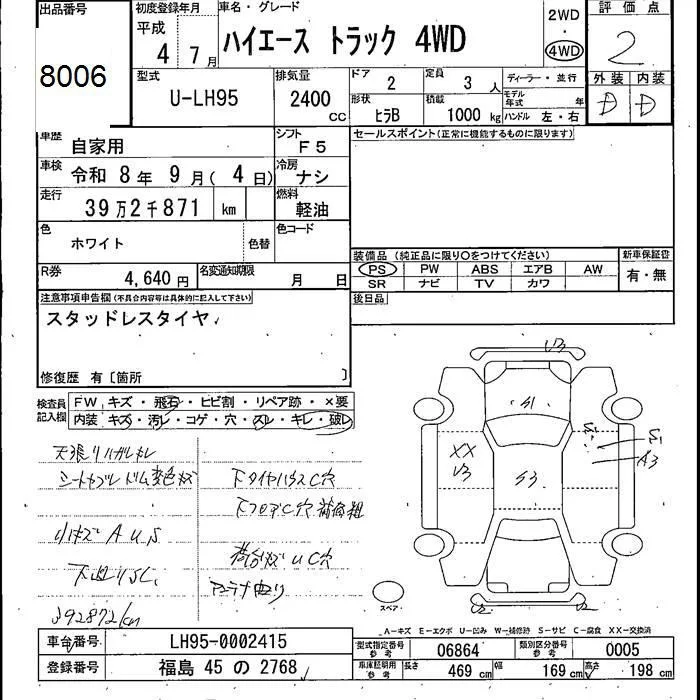 出品番号 初度登録年月 車名・グレード 評価点
8006 平成 4 7月 ハイエース トラック 4WD 2WD 4WD 2
外装 内装
D D
型式 排気量 ドア 定員 ディーラー・並行
U-LH95 2400 CC 2 3 人 モデル年式 年
形状 積載 ハンドル 左・右
ヒラB 1000 kg
車歴 自家用 シフト F5 セールスポイント(正常に機能するものに限ります)
車検 令和 8年 9月( 4日) 冷房 ナシ
走行 39万2千871 km 燃料 軽油
色 ホワイト 色替 色コード
装備品 (純正品に限り○をつけてください) 新車保証書
PS PW ABS エアB AW 有・無
SR ナビ TV カワ
R券 4,640円 名変通知期限 月 日
後日品
注意事項申告欄(不具合内容等は具体的に記入して下さい)
スタッドレスタイヤ
修復歴 有〔箇所 〕
検査員記入欄
FW キズ・飛石・ヒビ割・リペア跡・×要
内装 キズ・汚レ・コゲ・穴・スレ・キレ・破レ
天張りハガレ
小キズ A U S
下廻りS C
392872km
下タイヤハウスC穴
荷台キズ U C穴
アンテナ曲り
U3
S1
XX
U3
S3
S1
A3
U2
U2
スペア
A-キズ E-エクボ U-凹み W-補修跡 S-サビ C-腐食 XX-交換済
車台番号 LH95-0002415 型式指定番号 参考 06864 類別区分番号 参考 0005
登録番号 福島 45 の 2768 車庫証明用 参考 長さ 469 cm 幅 169 cm 高さ 198 cm